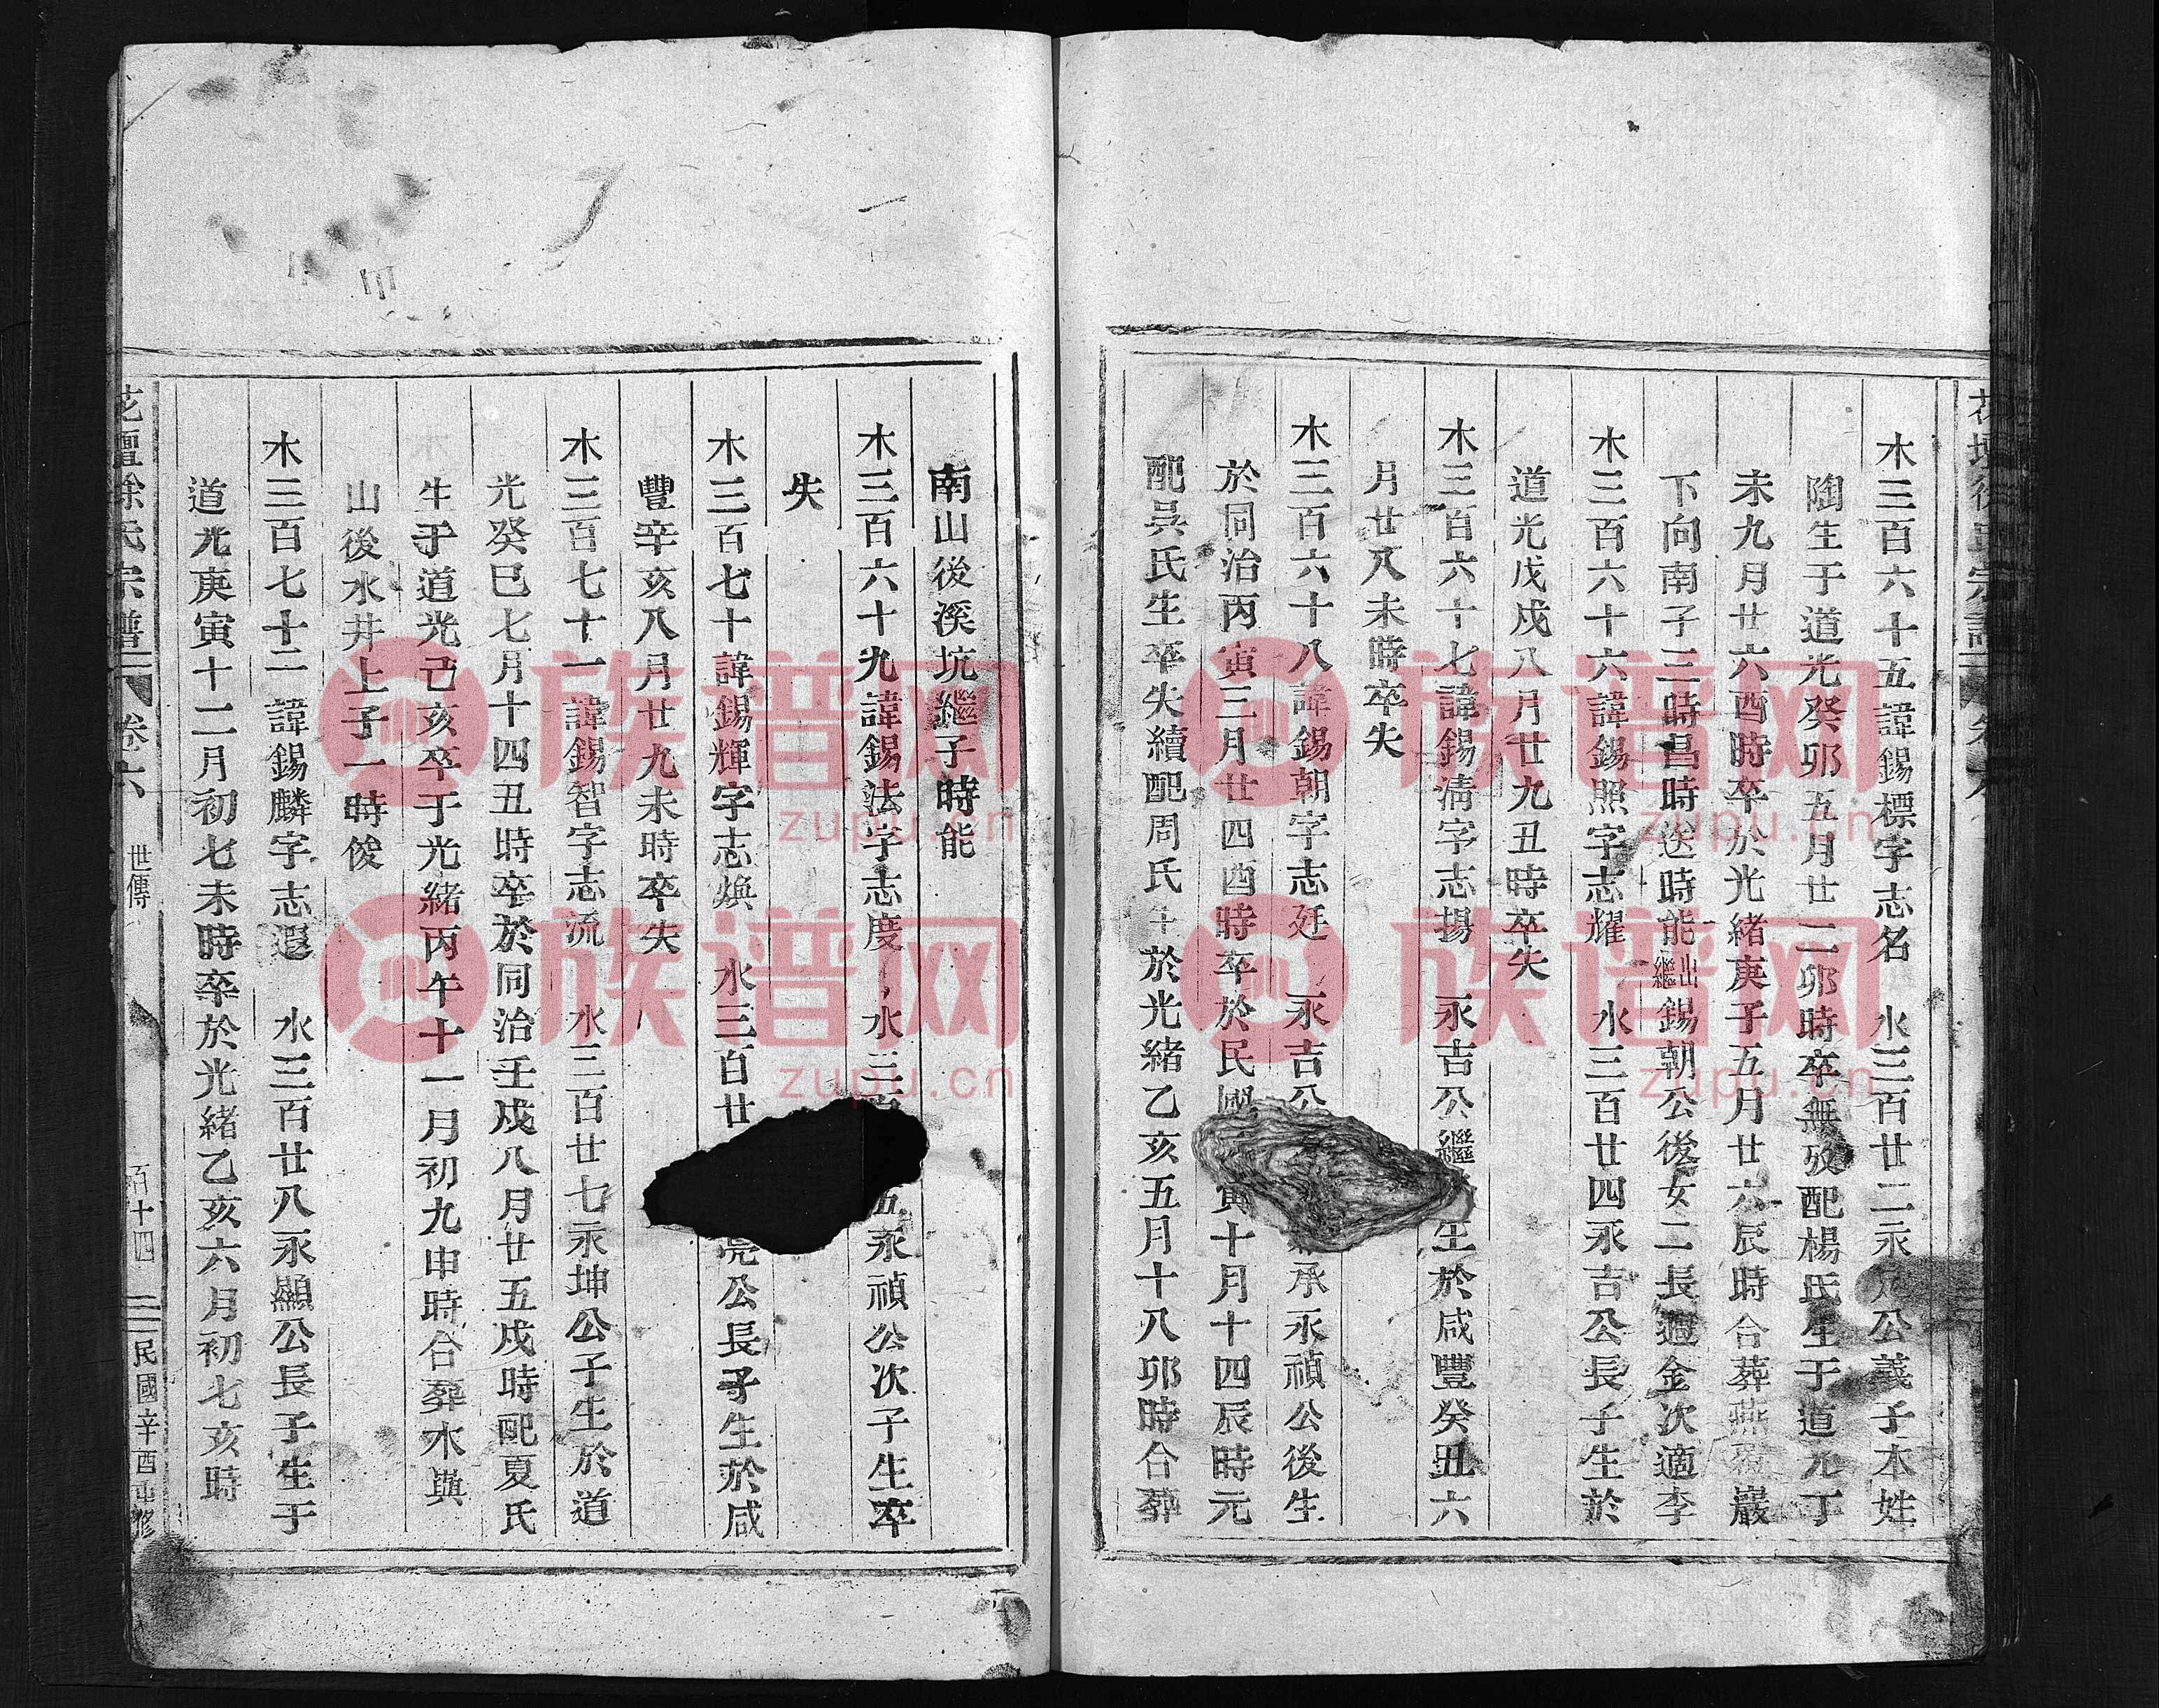 木三百六十五諱錫標字志名 水三百廿二永公義子本姓
陶生于道光癸卯五月廿二卯時卒無攷配楊氏生于道光丁
未九月廿六酉時卒於光緒庚子五月廿六辰時合葬燕巖
下向南子三時昌時送時能出繼錫朝公後女二長適金次適李
木三百六十六諱錫照字志耀 水三百廿四永吉公長子生於
道光戊戌八月廿九丑時卒失
木三百六十七諱錫淸字志揚 永吉公繼生於咸豐癸丑六
月廿八未時卒失
木三百六十八諱錫朝字志廷 永吉公承永禎公後生
於同治丙寅三月廿四酉時卒於民國寅十月十四辰時元
配吳氏生卒失續配周氏於光緒乙亥五月十八卯時合葬
南山後溪坑繼子時能
木三百六十九諱錫法字志度 水三五永禎公次子生卒
失
木三百七十諱錫輝字志煥 水三百廿亮公長子生於咸
豐辛亥八月廿九未時卒失
木三百七十一諱錫智字志流 水三百廿七永坤公子生於道
光癸巳七月十四丑時卒於同治壬戌八月廿五戌時配夏氏
生于道光己亥卒于光緒丙午十一月初九申時合葬水與
山後水井上子一時俊
木三百七十二諱錫麟字志遐 水三百廿八永顯公長子生于
道光庚寅十二月初七未時卒於光緒乙亥六月初七亥時
花壇徐氏宗譜 卷六 世傳 百十四 民國辛酉重修
族谱网
zupu.cn
族谱网
zupu.cn
族谱网
zupu.cn
族谱网
zupu.cn